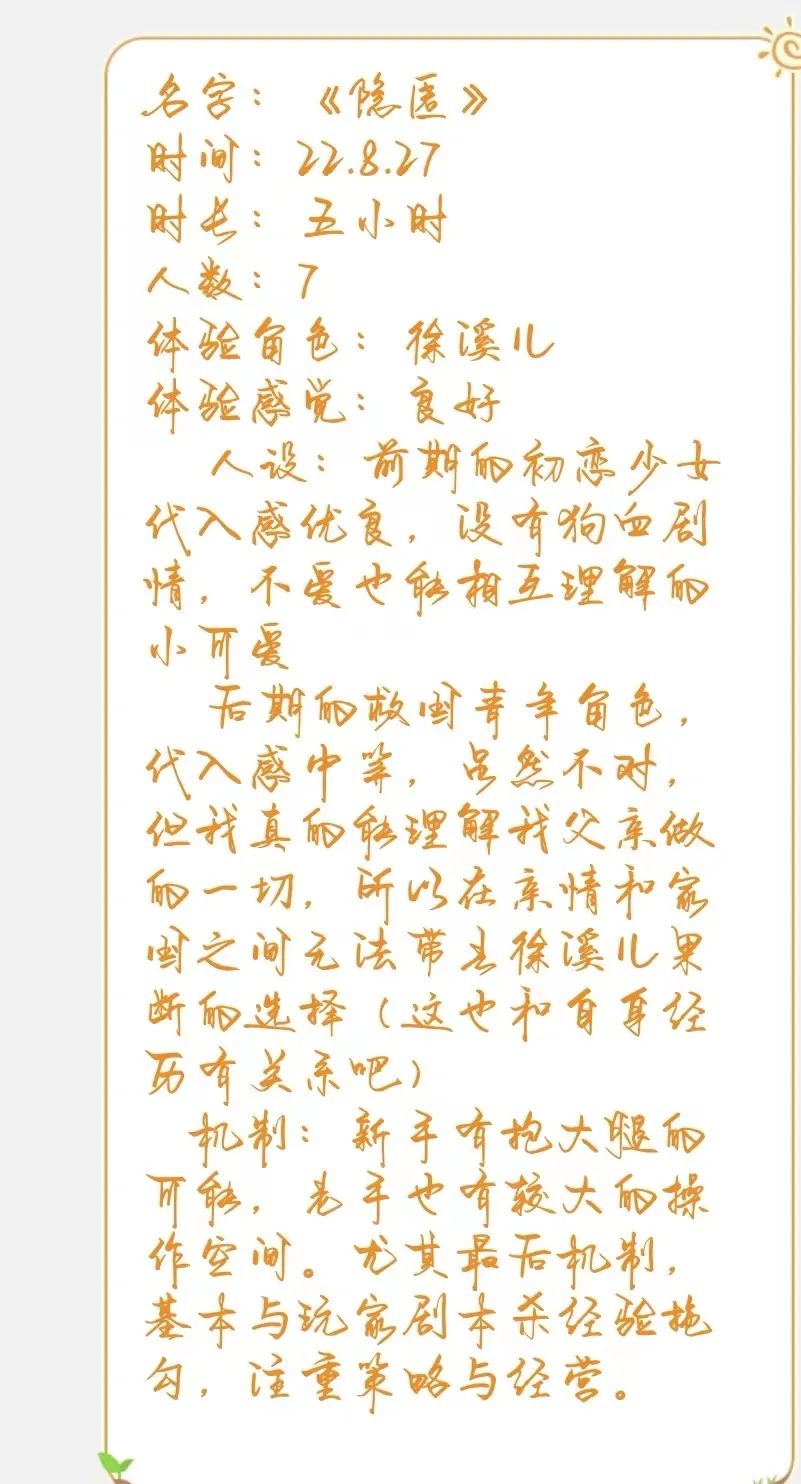 名字：《隐匿》
时间：22.8.27
时长：五小时
人数：7
体验角色：徐溪儿
体验感觉：良好
人设：前期的初恋少女
代入感优良，没有狗血剧
情，不爱也能相互理解的
小可爱
后期的救国青年角色，
代入感中等，虽然不对，
但我真的能理解我父亲做
的一切，所以在亲情和家
国之间无法带去徐溪儿果
断的选择（这也和自身经
历有关系吧）
机制：新手有抱大腿的
可能，老手也有较大的操
作空间。尤其最后机制，
基本与玩家剧本杀经验拖
勾，注重策略与经营。